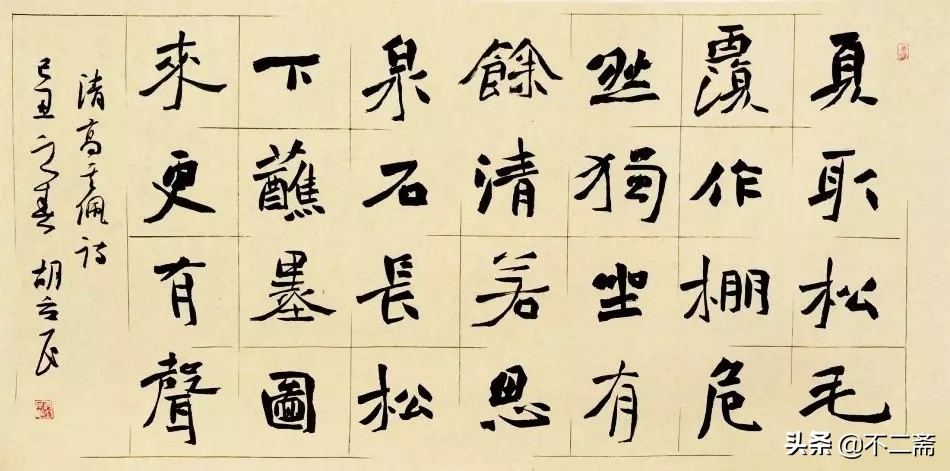 夏取松毛
覆作棚危
然獨坐有
餘清若思
泉石長松
下蘸墨圖
來更有聲
清高其佩詩
己丑之春 胡立民
头条 @不二斋